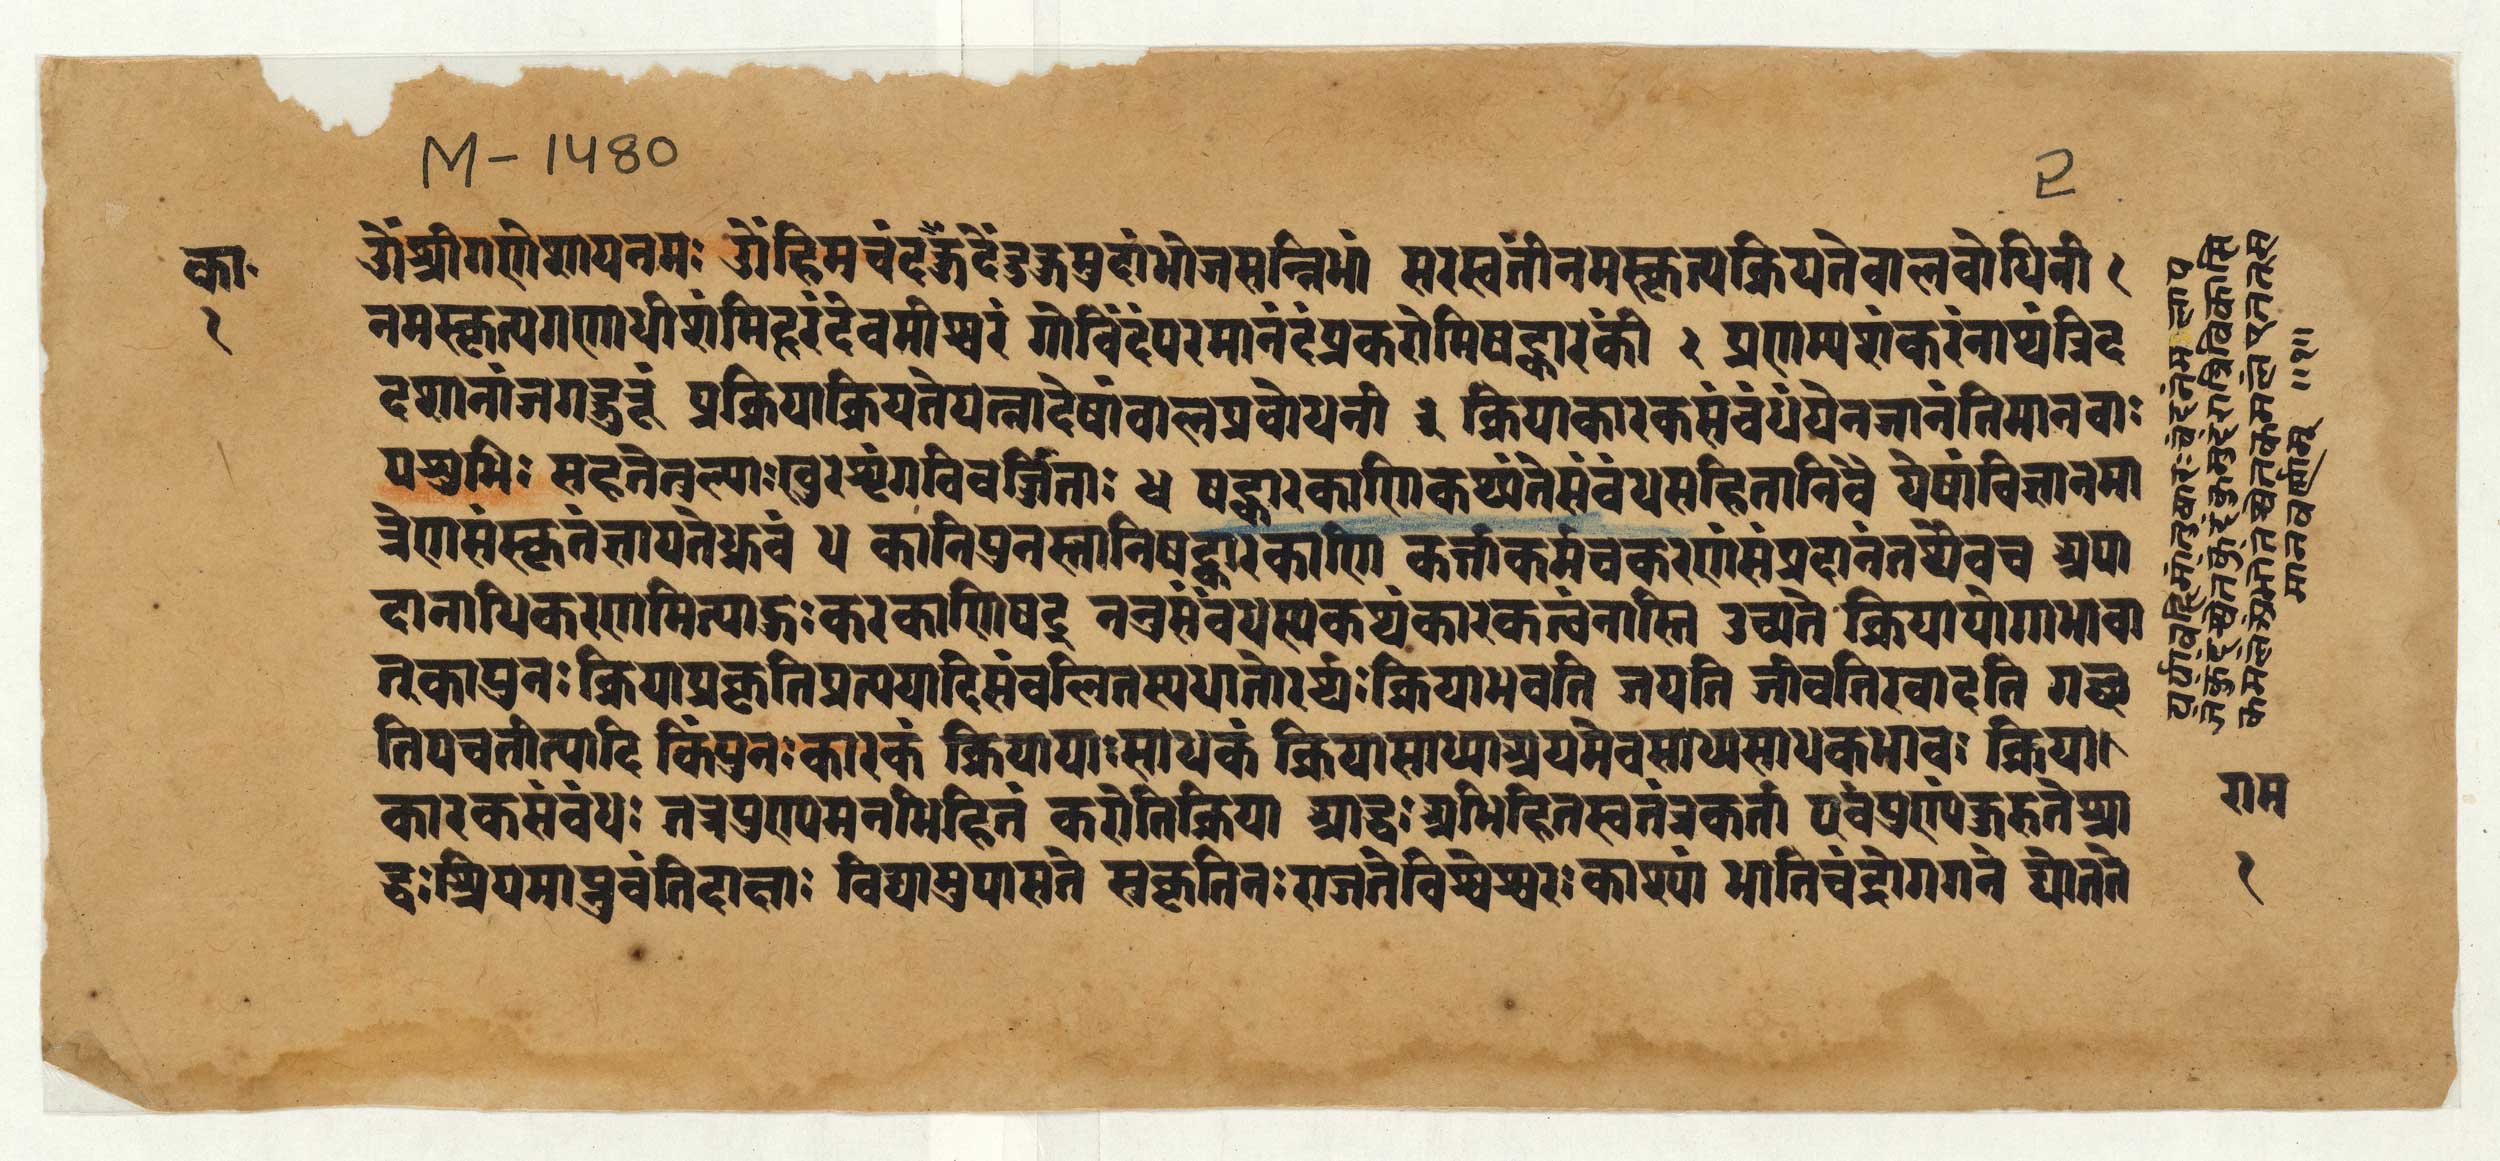 M-1480
2
का॰
१
ॐश्रीगणेशायनमः ॐहिमचंदनकुंदेंदुकुमुदांभोजसन्निभां सरस्वतींनमस्कृत्यक्रियतेवालवोधिनी १
नमस्कृत्यगणाधीशंमिहरंदेवमीश्वरं गोविंदंपरमानंदंप्रकरोमिषट्कारकीं २ प्रणम्यशंकरंनाथंत्रिद
दशानांजगद्गुरूं प्रक्रियाक्रियतेयत्नादेषांवालप्रवोधनी ३ क्रियाकारकसंवंधंयेनजानंतिमानवाः
पशुभिः सहतेतुल्याःखुरशृंगविवर्जिताः ४ षट्कारकाणिकथ्यंतेसंवंधसहितानिवै येषांविज्ञानमा
त्रेणसंस्कृतंज्ञायतेध्रुवं ५ कानिपुनस्तानिषट्कारकाणि कर्त्ताकर्मचकरणंसंप्रदानंतथैवच अपा
दानाधिकरणमित्याहुःकरकाणिषट् ननुसंवंधस्यकथंकारकत्वंनास्ति उच्यते क्रियायोगाभावा
त्कापुनः क्रियाप्रकृतिप्रत्ययादिसंवलितस्यधातोरर्थः क्रियाभवति जयति जीवतिखादति गच्छ
तिपचतीत्यादि किंपुनःकारकं क्रियायाःसाधकं क्रियासाध्याश्रयमेवसाध्यसाधकभावः क्रिया
कारकसंवंधः तत्रपुण्यमनभिहितं करोतिक्रिया श्राद्धः अभिहितस्वतंत्रकर्ता एवंपुण्यंकुरुतेश्रा
द्धः श्रियमाप्नुवंतिदातारः विद्यामुपासते सुकृतिनः राजतेविश्वेश्वरः काश्यां भातिचंद्रोगगने द्योतते
राम
१